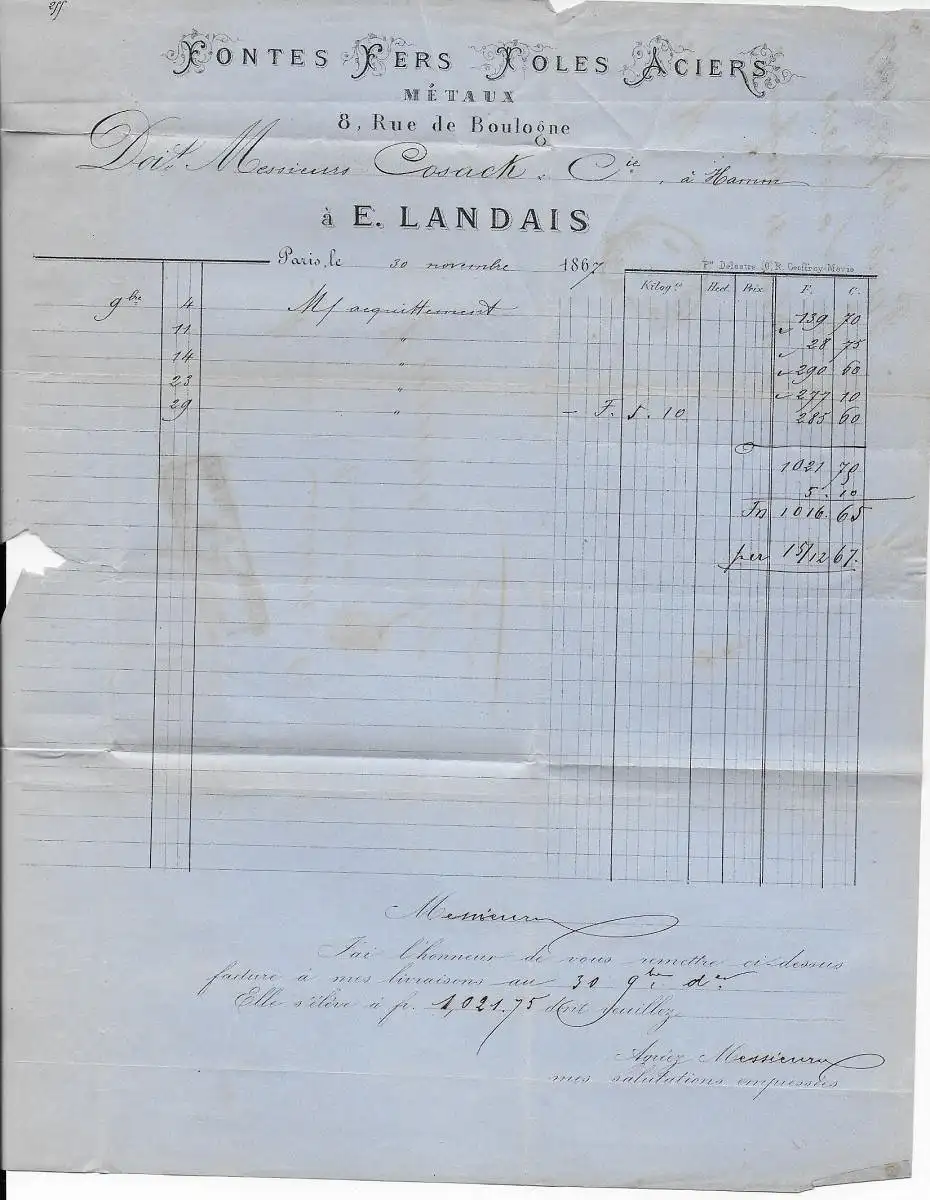 FONTES FERS TOLES ACIERS
MÉTAUX
8, Rue de Boulogne
Doivt Messieurs Cosack & Cie, à Hamm
à E. LANDAIS
Paris, le 30 novembre 1867
Kiloges Hect. Prix F. C.
9bre 4 M/ acquittement 139 70
11 " 28 75
14 " 290 60
23 " 277 10
29 " – F. 5.10 285 60
1021 75
5.10
Fn 1016.65
per 15/12 67.
Messieurs
J'ai l'honneur de vous remettre ci-dessus
facture à mes livraisons au 30 9bre der
Elle s'élève à fr. 1,021.75 dont veuillez
Agréez Messieurs
mes salutations empressées